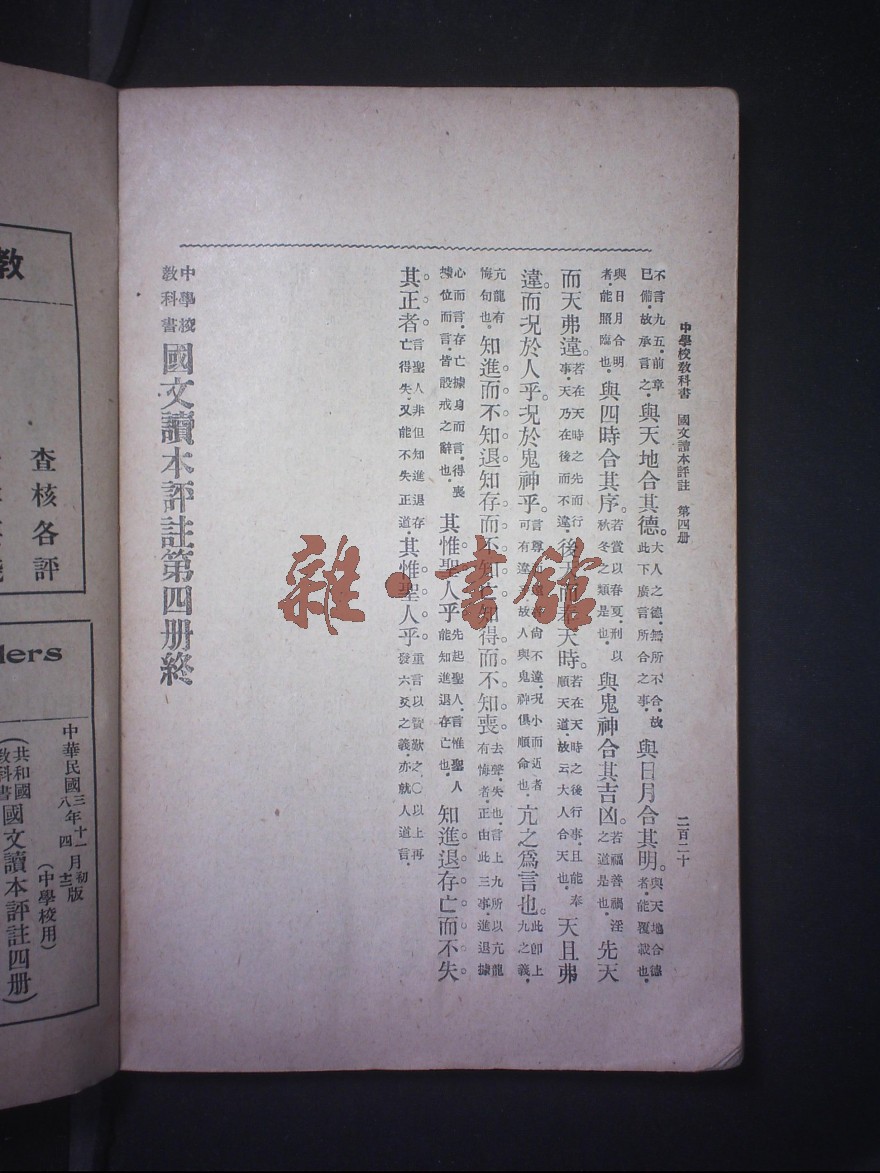 中學校教科書　國文讀本評註　第四册
二百二十
不言九五．前章
已備．故承言之．與天地合其德。大人之德．無所不合．故
此下廣言所合之事．與日月合其明。與天地合德
者．能覆載也．
與日月合明
者．能照臨也．與四時合其序。若賞以春夏．刑以
秋冬之類是也．與鬼神合其吉凶。若福善禍淫
之道是也．先天
而天弗違。若在天時之先而行
事．天乃在後而不違．後天而奉天時。若在天時之後行事．且能奉
順天道．故云大人合天也．天且弗
違。而況於人乎。況於鬼神乎。言尊而遠者尚不違．況小而近者
可有違乎．故人與鬼神俱順命也．亢之爲言也。此卽上
九之義．
亢龍有
悔句也．知進而不知退。知存而不知亡。知得而不知喪。去聲．失也．言上九所以亢龍
有悔者．正由此三事．進退據
心而言．存亡據身而言．得喪
據位而言．皆設戒之辭也．其惟聖人乎。先起聖人．言惟聖人
能知進退存亡也．知進退存亡而不失
其正者。言聖人非但知進退存
亡得失．又能不失正道．其惟聖人乎。重言以贊歎之．○以上再
發六爻之義．亦就人道言．
中學校
教科書國文讀本評註第四册終
雜·書館
教
查核各評
lers
中華民國三年十一月初版
八　四　十二
（中學校用）
（共和國
教科書國文讀本評註四册）